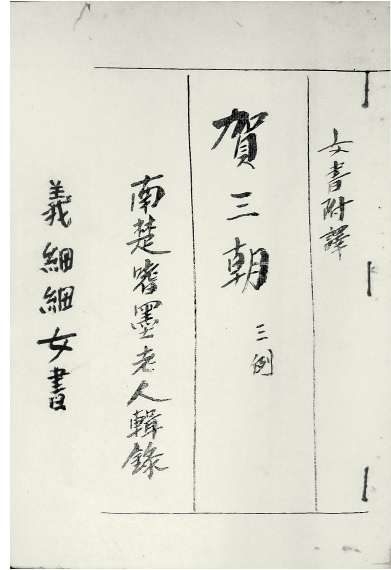 女書附譯
賀三朝 三例
南楚嗜墨老人輯錄
義細細女書